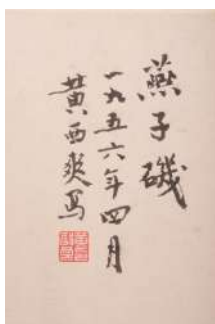 燕子磯
一九五六年四月
黄西爽写